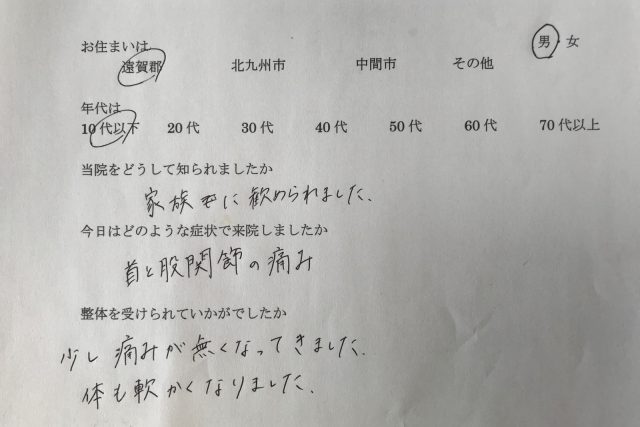 お住まいは
男・女
遠賀郡 北九州市 中間市 その他
年代は
10代以下 20代 30代 40代 50代 60代 70代以上
当院をどうして知られましたか
家族に歓められました.
今日はどのような症状で来院しましたか
首と股関節の痛み
整体を受けられていかがでしたか
少し痛みが無くなってきました.
体も軟かくなりました.